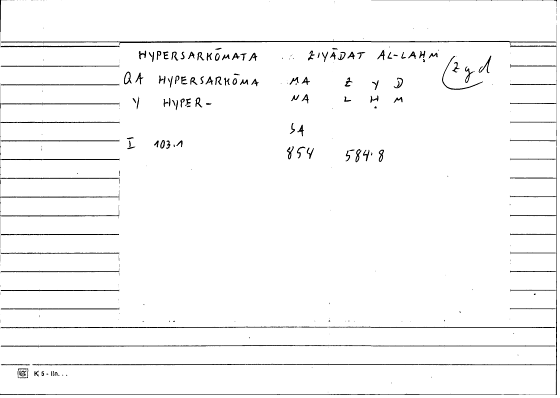 HYPERSARKŌMATA ZIYĀDAT AL-LAḤM
zyd
QA HYPERSARKŌMA MA Z Y D
Y HYPER- NA L Ḥ M
SA
I 103.1
854 584.8
K 5 - lln...